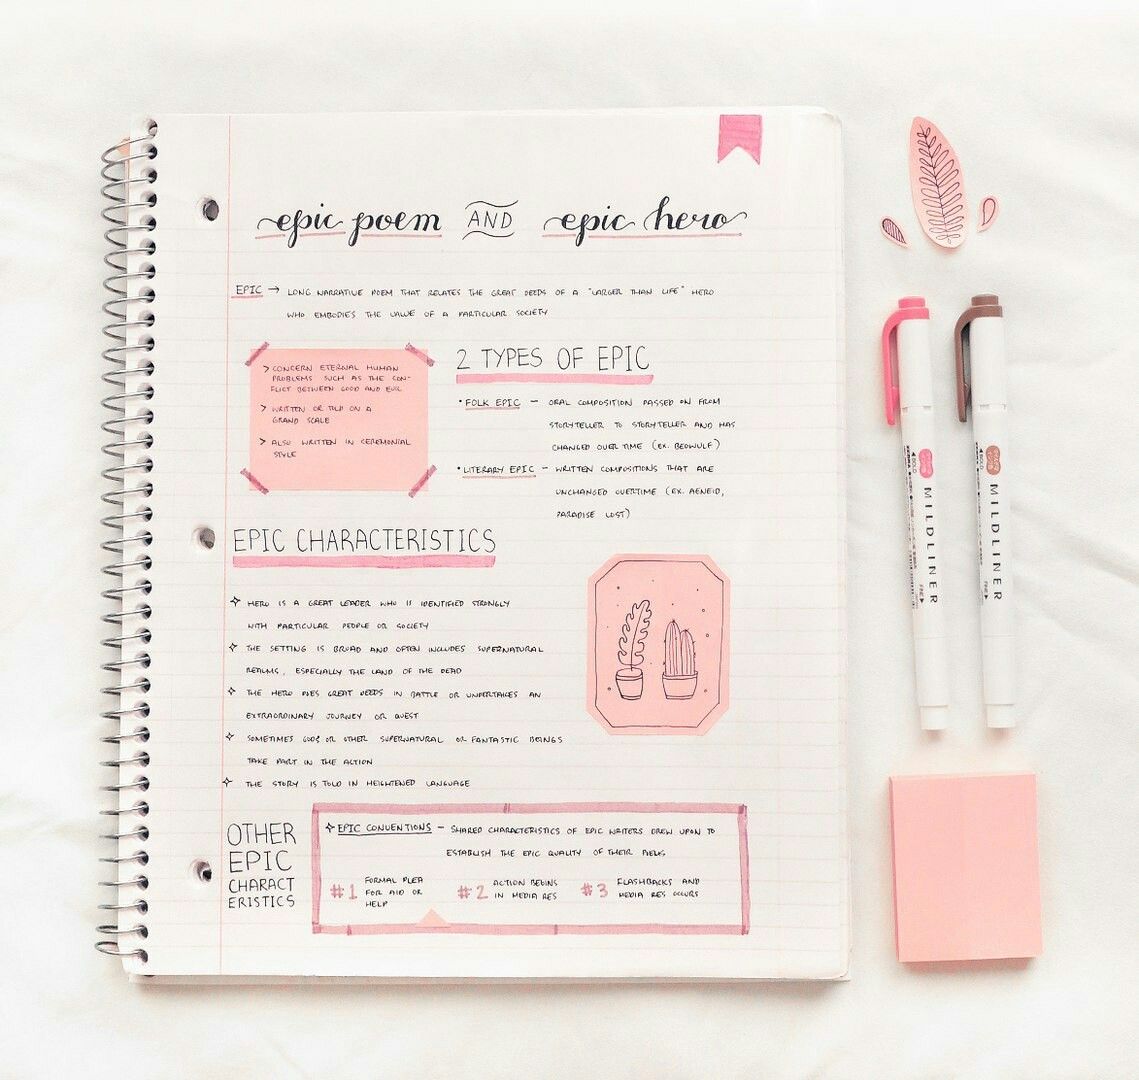 epic poem AND epic hero
EPIC → LONG NARRATIVE POEM THAT RELATES THE GREAT DEEDS OF A "LARGER THAN LIFE" HERO
WHO EMBODIES THE VALUE OF A PARTICULAR SOCIETY
> CONCERN ETERNAL HUMAN
PROBLEMS SUCH AS THE CON-
FLICT BETWEEN GOOD AND EVIL
> WRITTEN OR TOLD ON A
GRAND SCALE
> ALSO WRITTEN IN CEREMONIAL
STYLE
2 TYPES OF EPIC
• FOLK EPIC — ORAL COMPOSITION PASSED ON FROM
STORYTELLER TO STORYTELLER AND HAS
CHANGED OVER TIME (EX. BEOWULF)
• LITERARY EPIC — WRITTEN COMPOSITIONS THAT ARE
UNCHANGED OVERTIME (EX. AENEID,
PARADISE LOST)
EPIC CHARACTERISTICS
✧ HERO IS A GREAT LEADER WHO IS IDENTIFIED STRONGLY
WITH PARTICULAR PEOPLE OR SOCIETY
✧ THE SETTING IS BROAD AND OFTEN INCLUDES SUPERNATURAL
REALMS, ESPECIALLY THE LAND OF THE DEAD
✧ THE HERO DOES GREAT DEEDS IN BATTLE OR UNDERTAKES AN
EXTRAORDINARY JOURNEY OR QUEST
✧ SOMETIMES GODS OR OTHER SUPERNATURAL OR FANTASTIC BEINGS
TAKE PART IN THE ACTION
✧ THE STORY IS TOLD IN HEIGHTENED LANGUAGE
OTHER
EPIC
CHARACT
ERISTICS
✧ EPIC CONVENTIONS — SHARED CHARACTERISTICS OF EPIC WRITERS DREW UPON TO
ESTABLISH THE EPIC QUALITY OF THEIR
#1 FORMAL PLEA
FOR AID OR
HELP
#2 ACTION BEGINS
IN MEDIA RES
#3 FLASHBACKS AND
MEDIA RES OCCURS
BOLD
MILDLINER
FINE
BOLD
MILDLINER
FINE